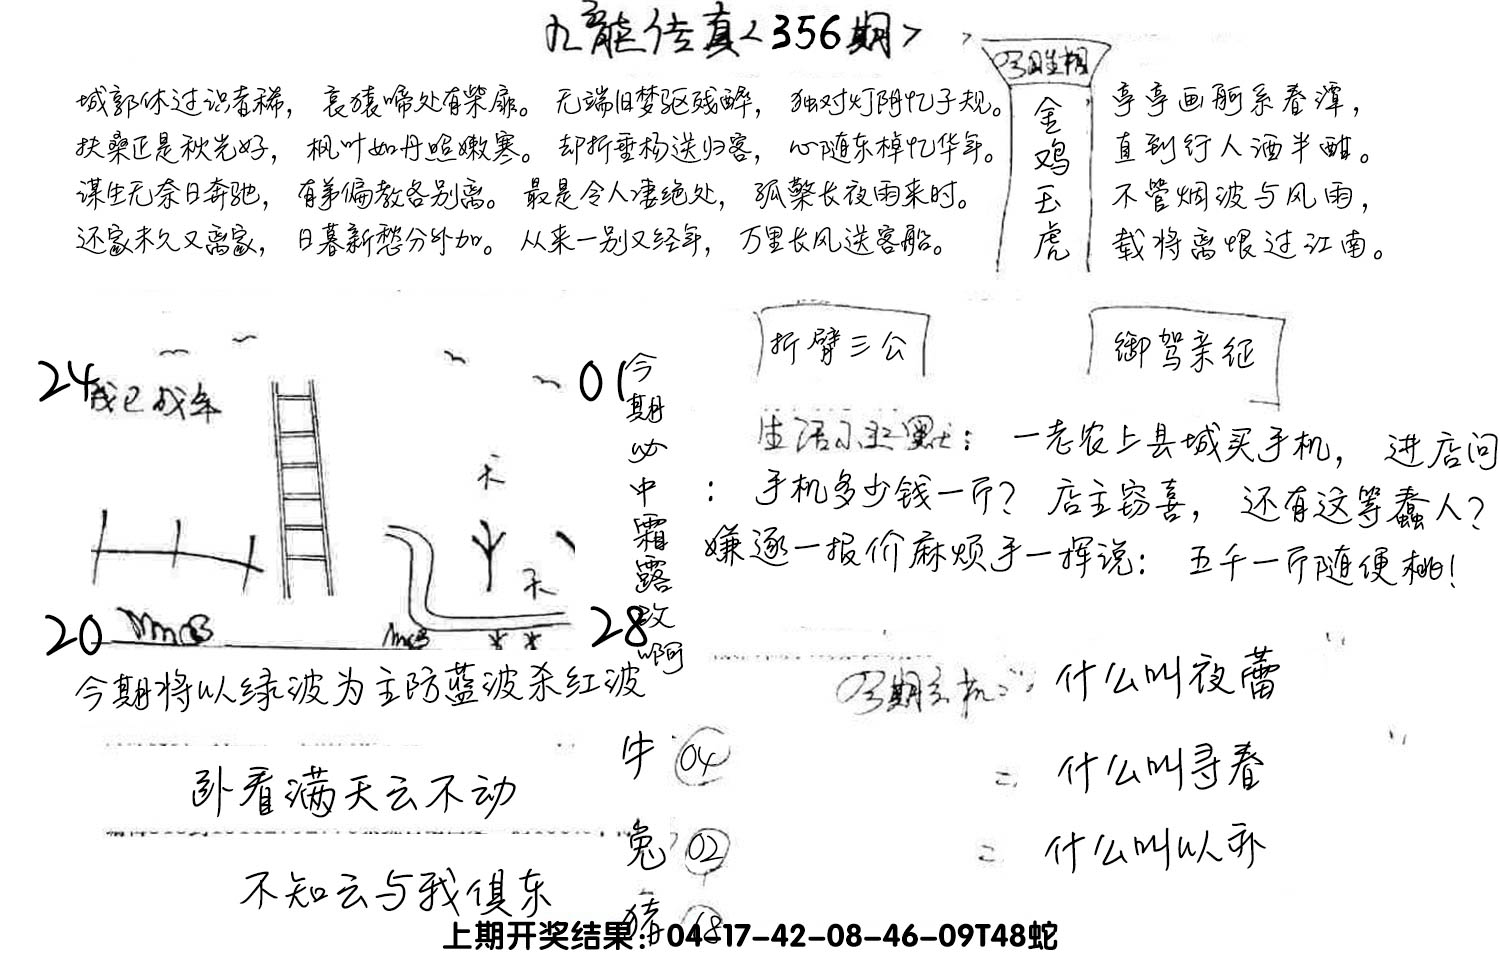 九龙传真<356期>
今期生相
金鸡玉虎
城郭休过识者稀，哀猿啼处有柴扉。无端旧梦驱残醉，独对灯阴忆子规。
扶桑正是秋光好，枫叶如丹照嫩寒。却折垂杨送归客，心随东棹忆华年。
谋生无奈日奔驰，有弟偏教各别离。最是令人凄绝处，孤檠长夜雨来时。
还家未久又离家，日暮新愁分外加。从来一别又经年，万里长风送客船。
亭亭画舸系春潭，
直到行人酒半酣。
不管烟波与风雨，
载将离恨过江南。
24
01
我已成年
天
天
20
28
今期必中霜露改啊
今期将以绿波为主防蓝波杀红波
折臂三公
御驾亲征
生活小幽默：一老农上县城买手机，进店问
：手机多少钱一斤？店主窃喜，还有这等蠢人？
嫌逐一报价麻烦手一挥说：五千一斤随便挑！
什么叫夜蕾
什么叫寻春
什么叫以亦
卧看满天云不动
不知云与我俱东
牛 04
兔 02
猪 18
上期开奖结果：04-17-42-08-46-09T48蛇